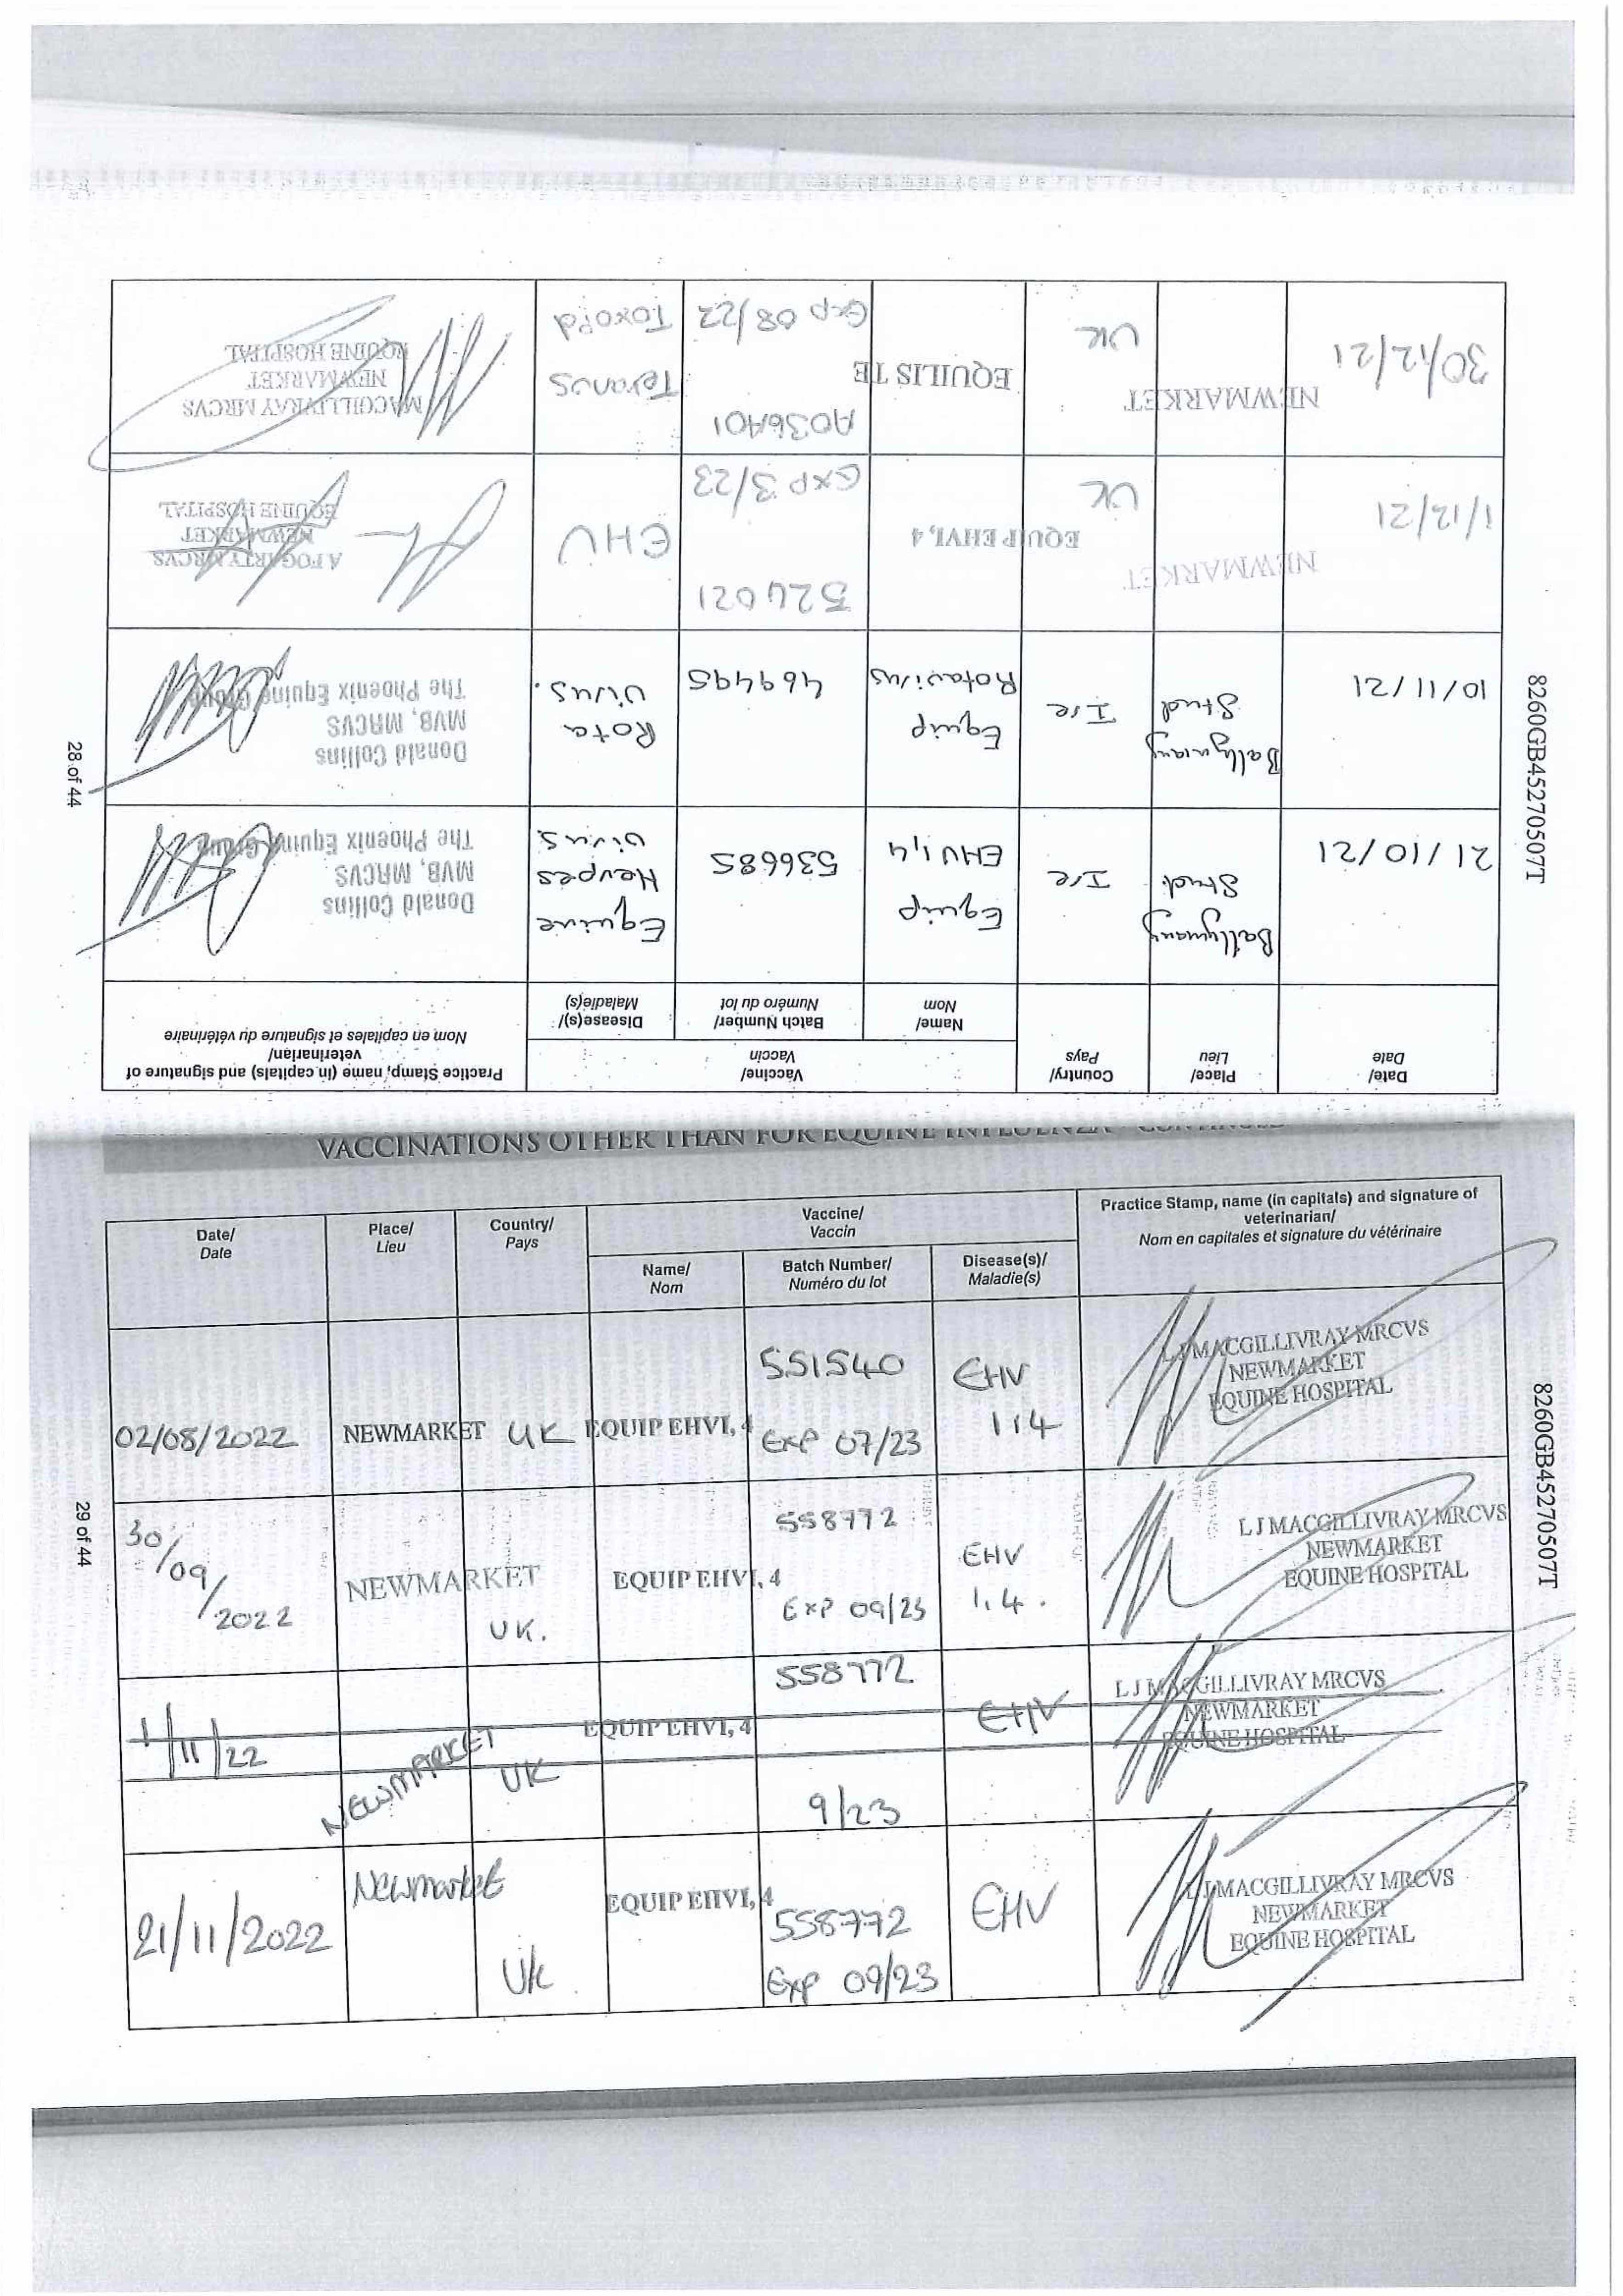 8260GB45270507T
28 of 44
Date/
Date
Place/
Lieu
Country/
Pays
Vaccine/
Vaccin
Name/
Nom
Batch Number/
Numéro du lot
Disease(s)/
Maladie(s)
Practice Stamp, name (in capitals) and signature of
veterinarian/
Nom en capitales et signature du vétérinaire
21/10/21
Ballymany
Stud
Ire
Equip
EHV 1,4
536685
Equine
Herpes
Virus
Donald Collins
MVB, MRCVS
The Phoenix Equine Group
10/11/21
Ballymany
Stud
Ire
Equip
Rotavirus
469495
Rota
Virus.
Donald Collins
MVB, MRCVS
The Phoenix Equine Group
1/12/21
NEWMARKET
UK
EQUIP EHV1, 4
524021
Exp 3/23
EHV
A FOGARTY MRCVS
NEWMARKET
EQUINE HOSPITAL
30/12/21
NEWMARKET
UK
EQUILIS TE
A036A01
Exp 08/22
Tetanus
Toxoid
MACGILLIVRAY MRCVS
NEWMARKET
EQUINE HOSPITAL
VACCINATIONS OTHER THAN FOR EQUINE INFLUENZA - CONTINUED
Date/
Date
Place/
Lieu
Country/
Pays
Vaccine/
Vaccin
Name/
Nom
Batch Number/
Numéro du lot
Disease(s)/
Maladie(s)
Practice Stamp, name (in capitals) and signature of
veterinarian/
Nom en capitales et signature du vétérinaire
02/08/2022
NEWMARKET
UK
EQUIP EHV1, 4
551540
Exp 07/23
EHV
1,4
L J MACGILLIVRAY MRCVS
NEWMARKET
EQUINE HOSPITAL
30/09/2022
NEWMARKET
UK.
EQUIP EHV1, 4
558772
Exp 09/23
EHV
1,4.
L J MACGILLIVRAY MRCVS
NEWMARKET
EQUINE HOSPITAL
1/11/22
NEWMARKET
UK
EQUIP EHV1, 4
558772
9/23
EHV
L J MACGILLIVRAY MRCVS
NEWMARKET
EQUINE HOSPITAL
21/11/2022
Newmarket
UK
EQUIP EHV1, 4
558772
Exp 09/23
EHV
L J MACGILLIVRAY MRCVS
NEWMARKET
EQUINE HOSPITAL
29 of 44
8260GB45270507T